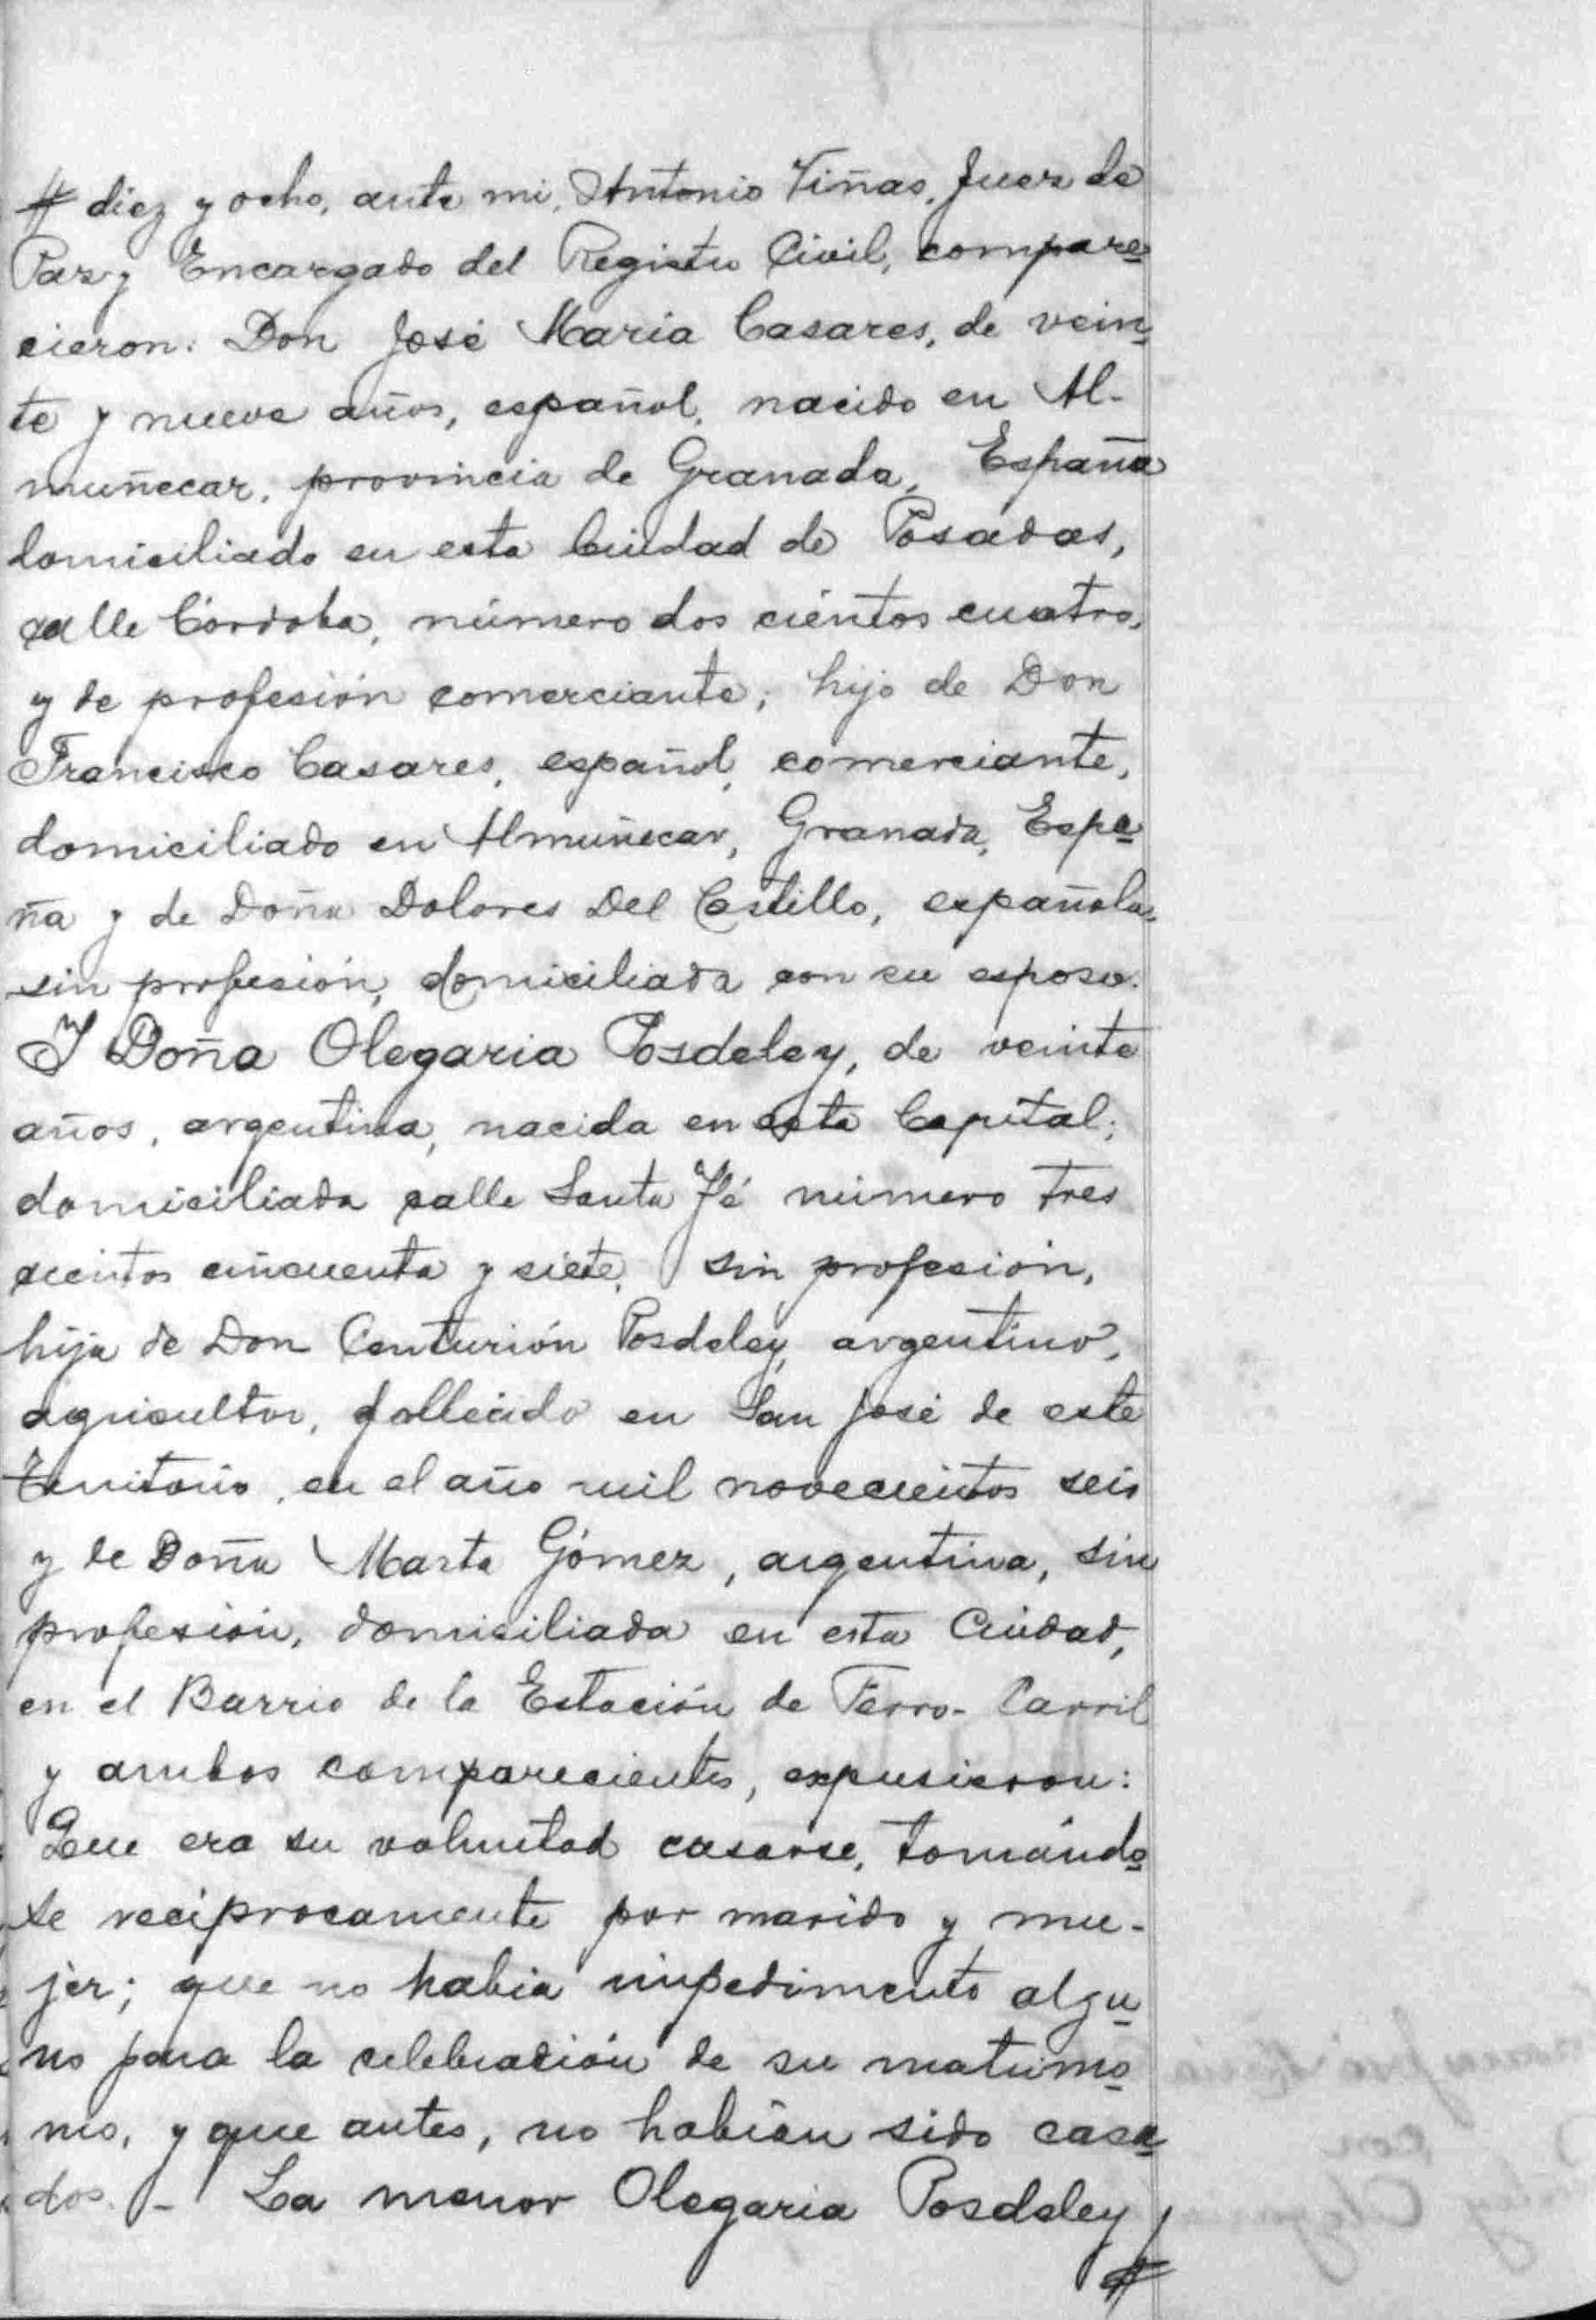 # diez y ocho, ante mi, Antonio Viñas, Juez de
Paz y Encargado del Registro Civil, compare
cieron: Don José Maria Casares, de vein
te y nueve años, español, nacido en Al-
muñecar, provincia de Granada, España
domiciliado en esta Ciudad de Posadas,
calle Córdoba, número dos cientos cuatro,
y de profesión comerciante; hijo de Don
Francisco Casares, español, comerciante,
domiciliado en Almuñecar, Granada, Espa
ña y de Doña Dolores Del Castillo, española,
sin profesión, domiciliada con su esposo.
Y Doña Olegaria Posdeley, de veinte
años, argentina, nacida en esta Capital;
domiciliada calle Santa Fé número tres
cientos cincuenta y siete, sin profesión,
hija de Don Centurión Posdeley, argentino,
agricultor, fallecido en San José de este
Territorio, en el año mil novecientos seis
y de Doña Marta Gómez, argentina, sin
profesión, domiciliada en esta Ciudad,
en el Barrio de la Estación de Ferro-Carril
y ambos comparecientes, expusieron:
Que era su voluntad casarse, tomándo
se recíprocamente por marido y mu-
jer; que no habia impedimento algu
no para la celebración de su matrimo
nio, y que antes, no habian sido casa
dos. - La menor Olegaria Posdeley
#